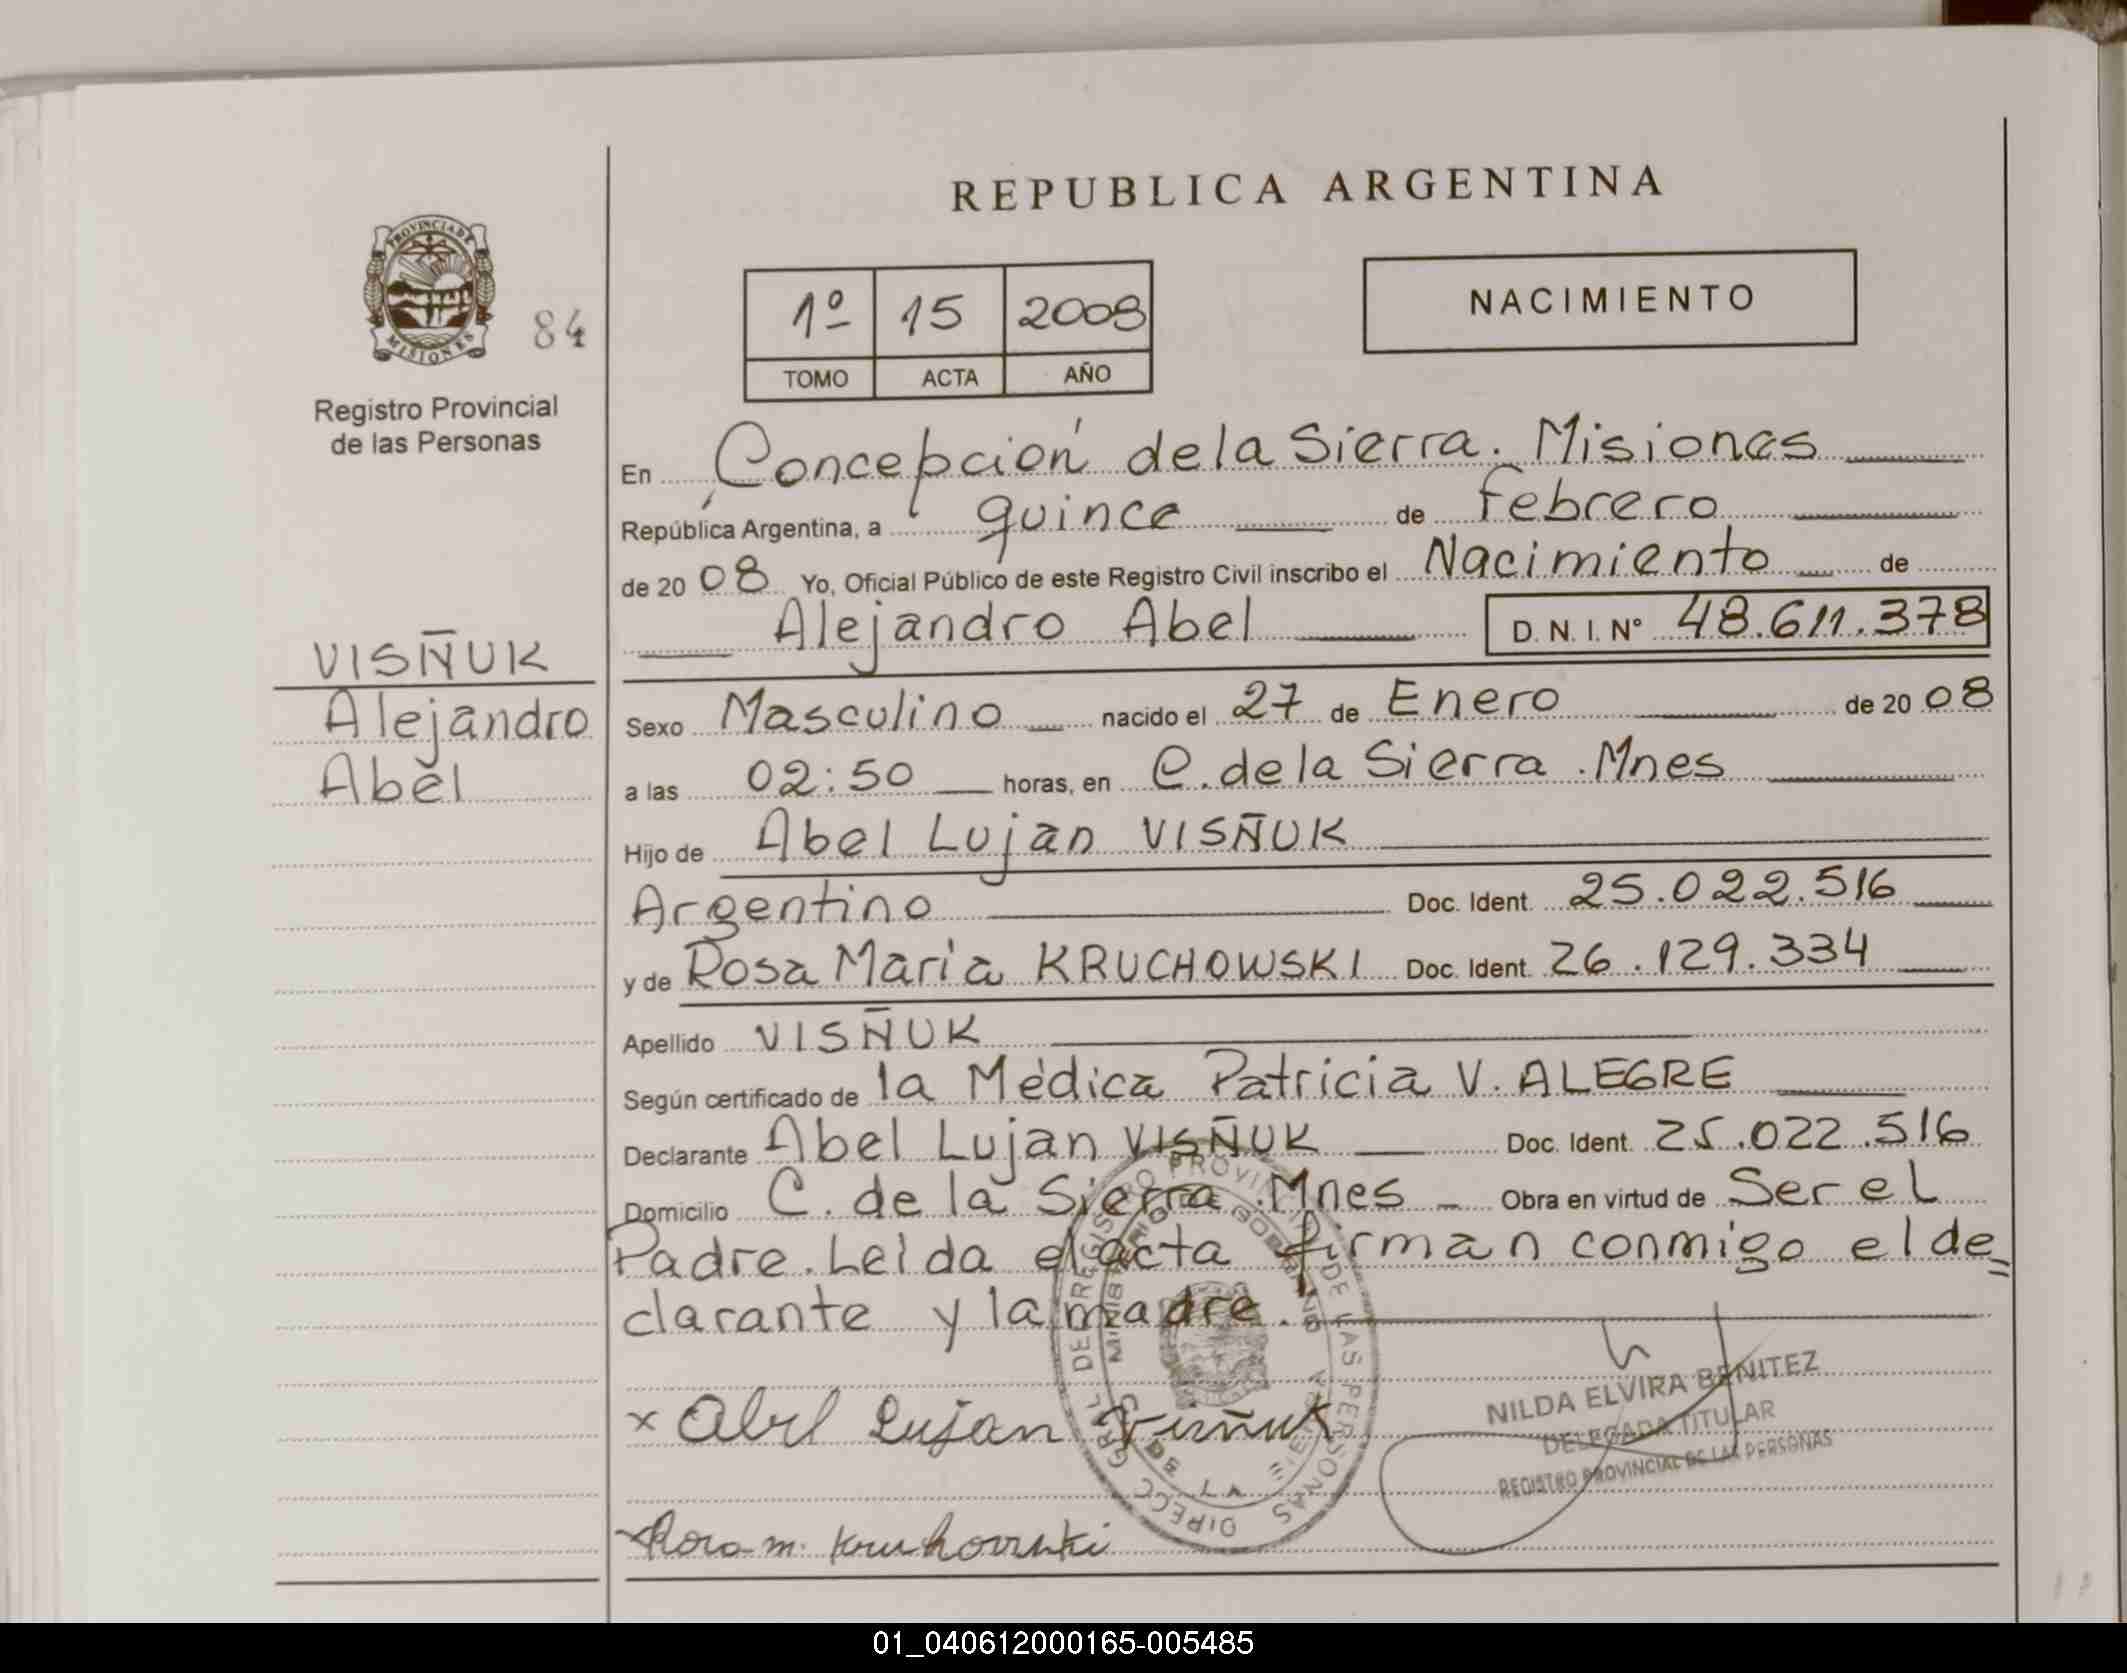 REPUBLICA ARGENTINA
PROVINCIA DE
MISIONES
84
Registro Provincial
de las Personas
1º 15 2008
TOMO ACTA AÑO
NACIMIENTO
En Concepción de la Sierra. Misiones
República Argentina, a quince de febrero
de 20 08 Yo, Oficial Público de este Registro Civil inscribo el Nacimiento de
Alejandro Abel D. N. I. Nº 48.611.378
VISÑUK
Alejandro
Abel
Sexo Masculino nacido el 27 de Enero de 20 08
a las 02:50 horas, en C. de la Sierra. Mnes
Hijo de Abel Lujan VISÑUK
Argentino Doc. Ident. 25.022.516
y de Rosa Maria KRUCHOWSKI Doc. Ident. 26.129.334
Apellido VISÑUK
Según certificado de la Médica Patricia V. ALEGRE
Declarante Abel Lujan VISÑUK Doc. Ident. 25.022.516
Domicilio C. de la Sierra. Mnes Obra en virtud de Ser el
Padre. Leida el acta firman conmigo el de=
clarante y la madre.
DIRECC GRAL DE REGISTRO PROVINCIAL DE LAS PERSONAS
NILDA ELVIRA BENITEZ
DELEGADA TITULAR
REGISTRO PROVINCIAL DE LAS PERSONAS
x Abel Lujan Visñuk
x Rosa m. Kruchowski
01_040612000165-005485